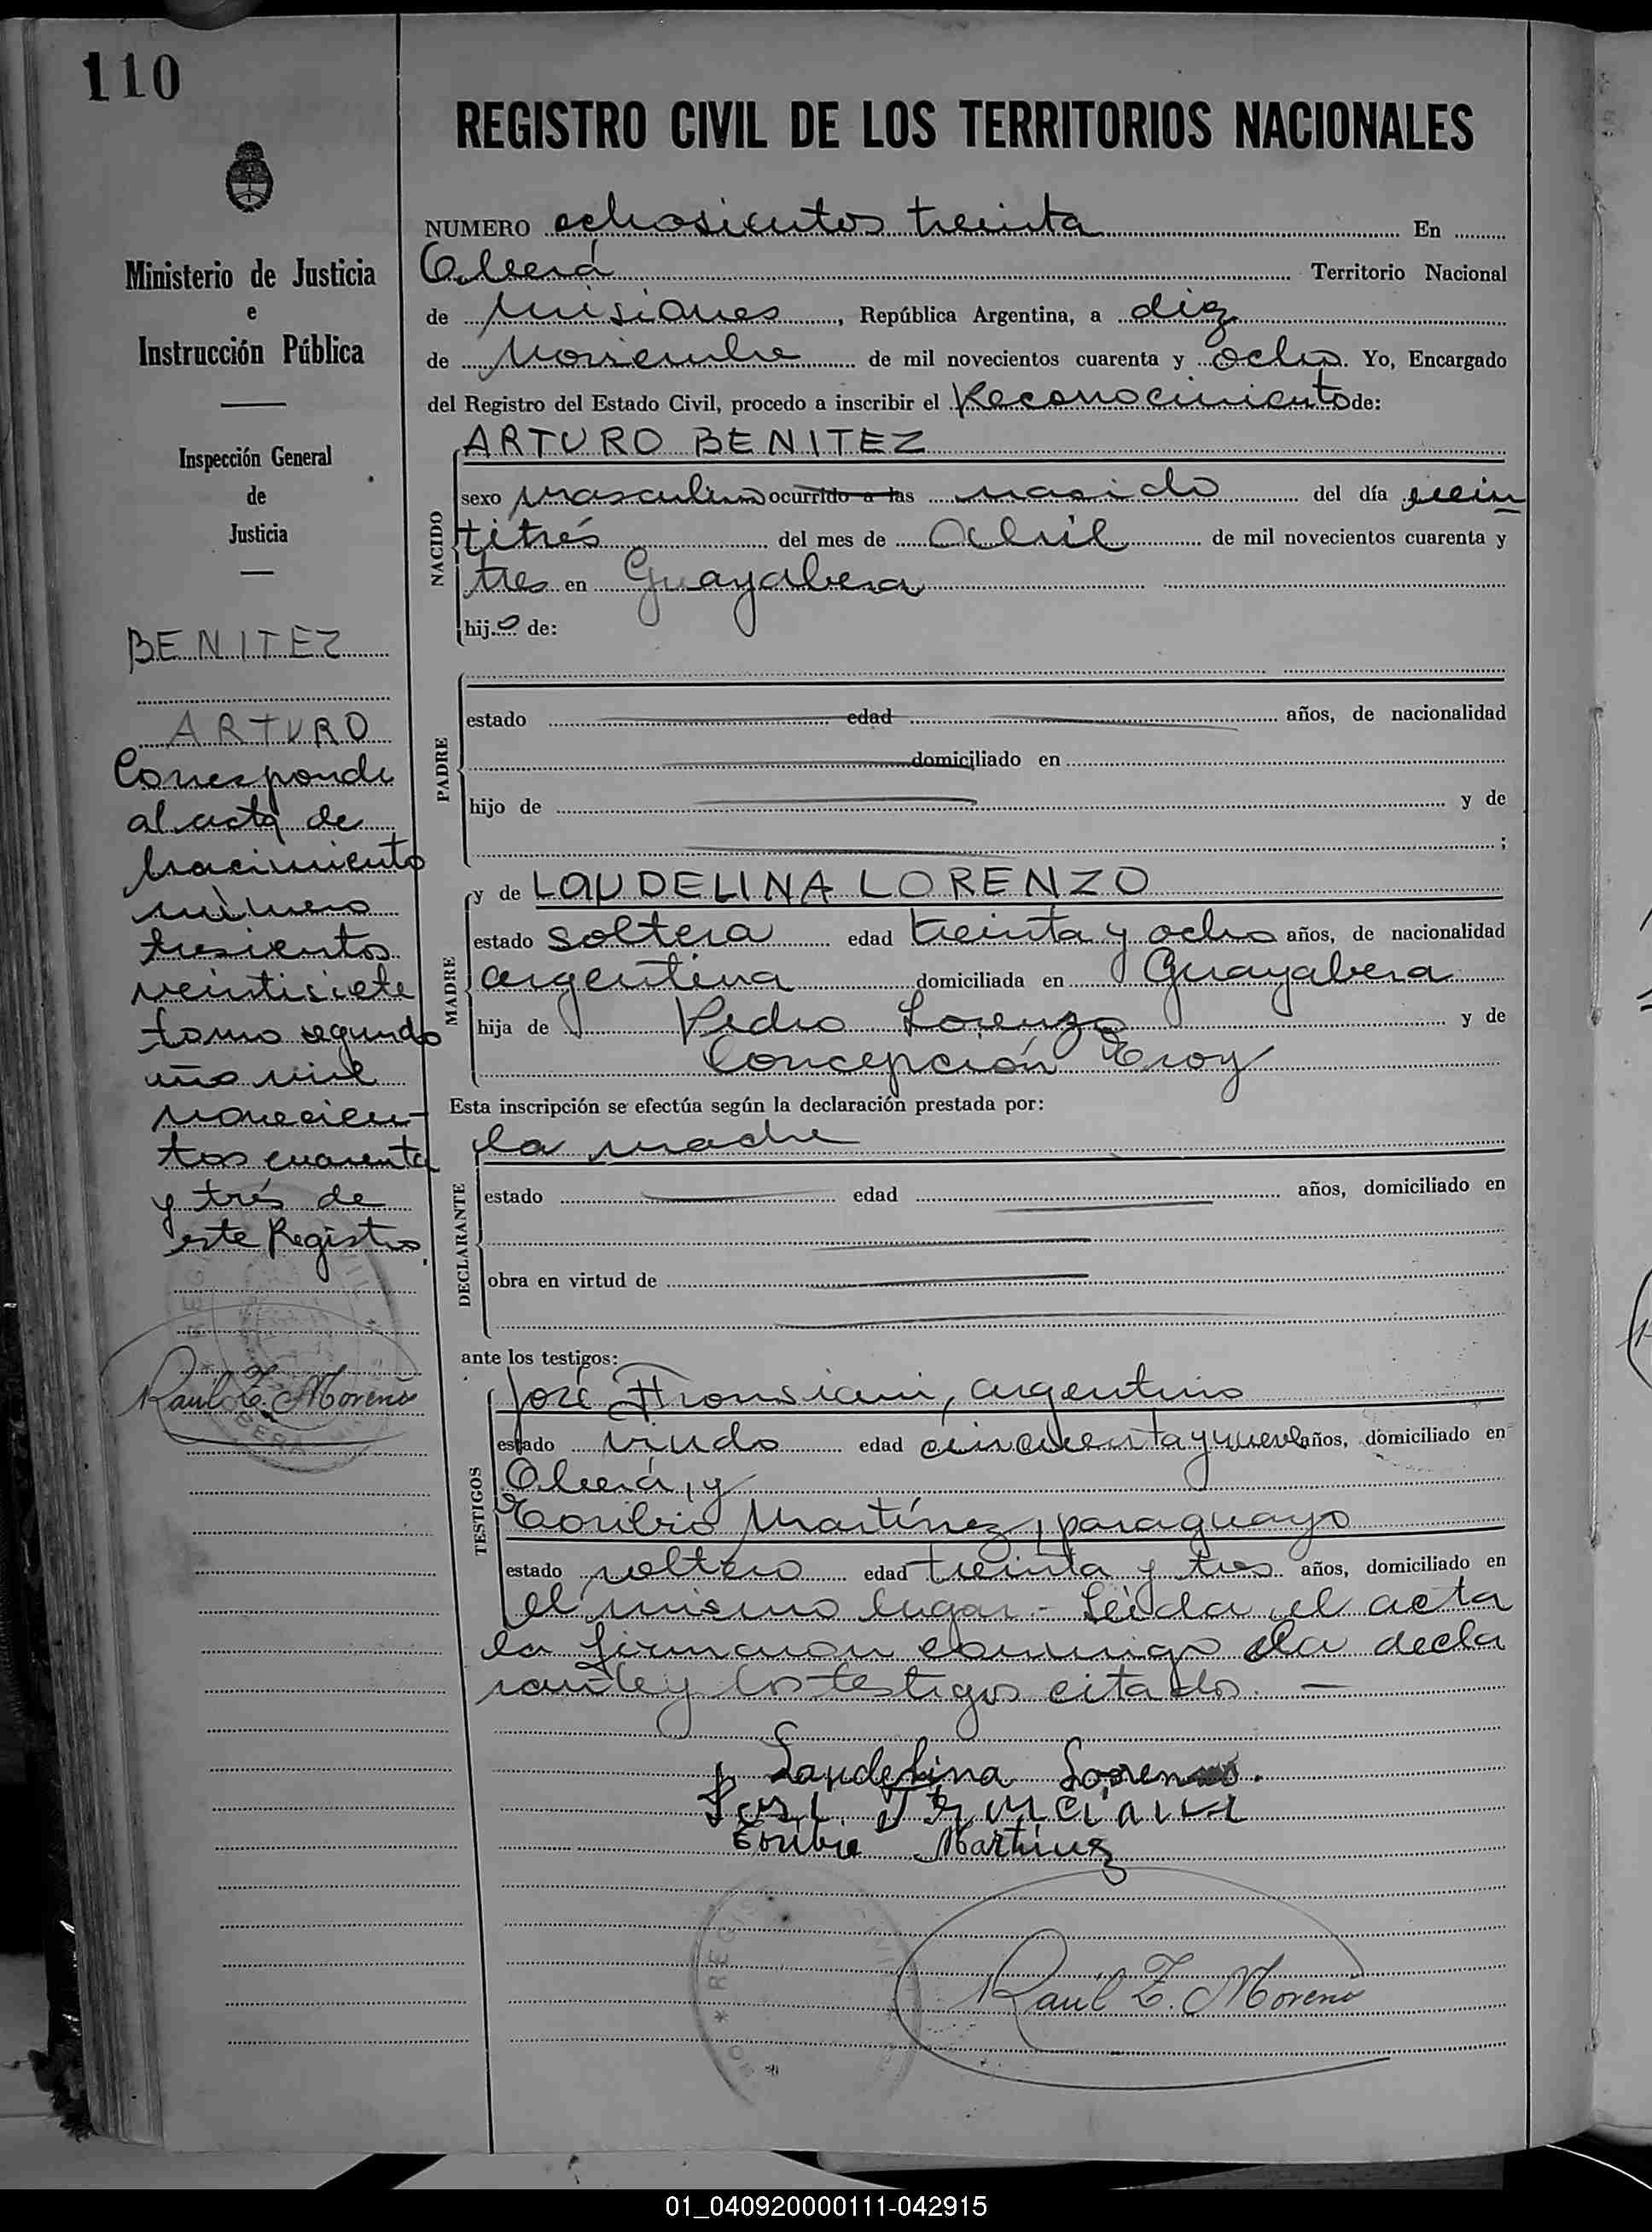 110
REGISTRO CIVIL DE LOS TERRITORIOS NACIONALES
Ministerio de Justicia
e
Instrucción Pública
Inspección General
de
Justicia
BENITEZ
ARTURO
Corresponde
al acta de
nacimiento
número
tresientos
veintisiete
tomo segundo
año mil
novecien-
tos cuarenta
y trés de
este Registro.
Raúl Z. Moreno
NUMERO ochosientos treinta En
Oberá Territorio Nacional
de Misiones, República Argentina, a diez
de Noviembre de mil novecientos cuarenta y ocho. Yo, Encargado
del Registro del Estado Civil, procedo a inscribir el Reconocimiento de:
NACIDO
ARTURO BENITEZ
sexo masculino ocurrido a las nacido del día vein
titrés del mes de Abril de mil novecientos cuarenta y
tres en Guayabera
hijo de:
PADRE
estado edad años, de nacionalidad
domiciliado en
hijo de y de
;
MADRE
y de LAUDELINA LORENZO
estado soltera edad treinta y ocho años, de nacionalidad
argentina domiciliada en Guayabera
hija de Pedro Lorenzo y de
Concepción Eroy
Esta inscripción se efectúa según la declaración prestada por:
DECLARANTE
la madre
estado edad años, domiciliado en
obra en virtud de
ante los testigos:
TESTIGOS
José Fronsiani, argentino
estado viudo edad cincuenta y nueve años, domiciliado en
Oberá, y
Toribio Martínez, paraguayo
estado soltero edad treinta y tres años, domiciliado en
el mismo lugar.- Leída el acta
la firmaron conmigo la decla
rante y los testigos citados. —
Laudelina Lorenzo.
José
Toribio Martinez
REGIS
Raúl Z. Moreno
01_040920000111-042915